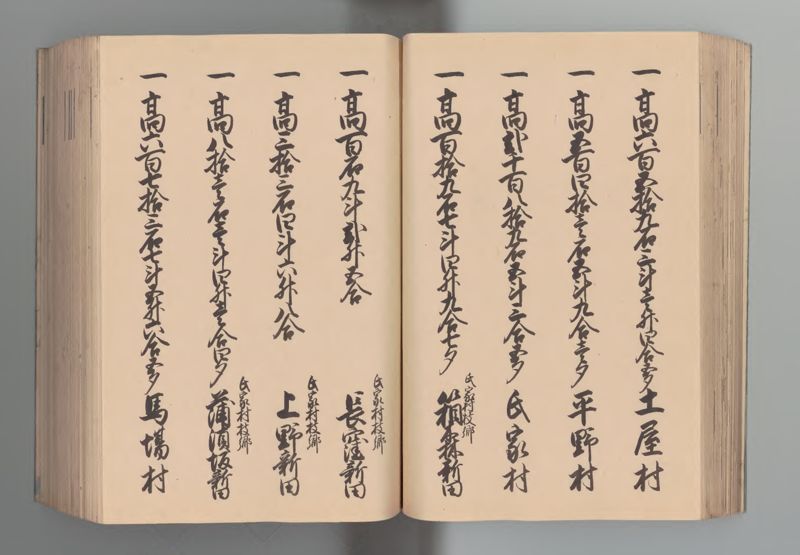 一 高六百五拾九石三斗壱升四合五夕 土屋村
一 高五百四拾壱石五斗九合壱夕 平野村
一 高弐千百八拾九石五斗三合五夕 氏家村
一 高百拾九石七斗四升九合七夕 氏家村枝郷 箱森新田
一 高百石九斗弐升五合 氏家村枝郷 長窪新田
一 高三拾三石四斗六升八合 氏家村枝郷 上野新田
一 高八拾壱石壱斗四升壱合四夕 氏家村枝郷 蒲須坂新田
一 高六百七拾三石七斗五升六合五夕 馬場村